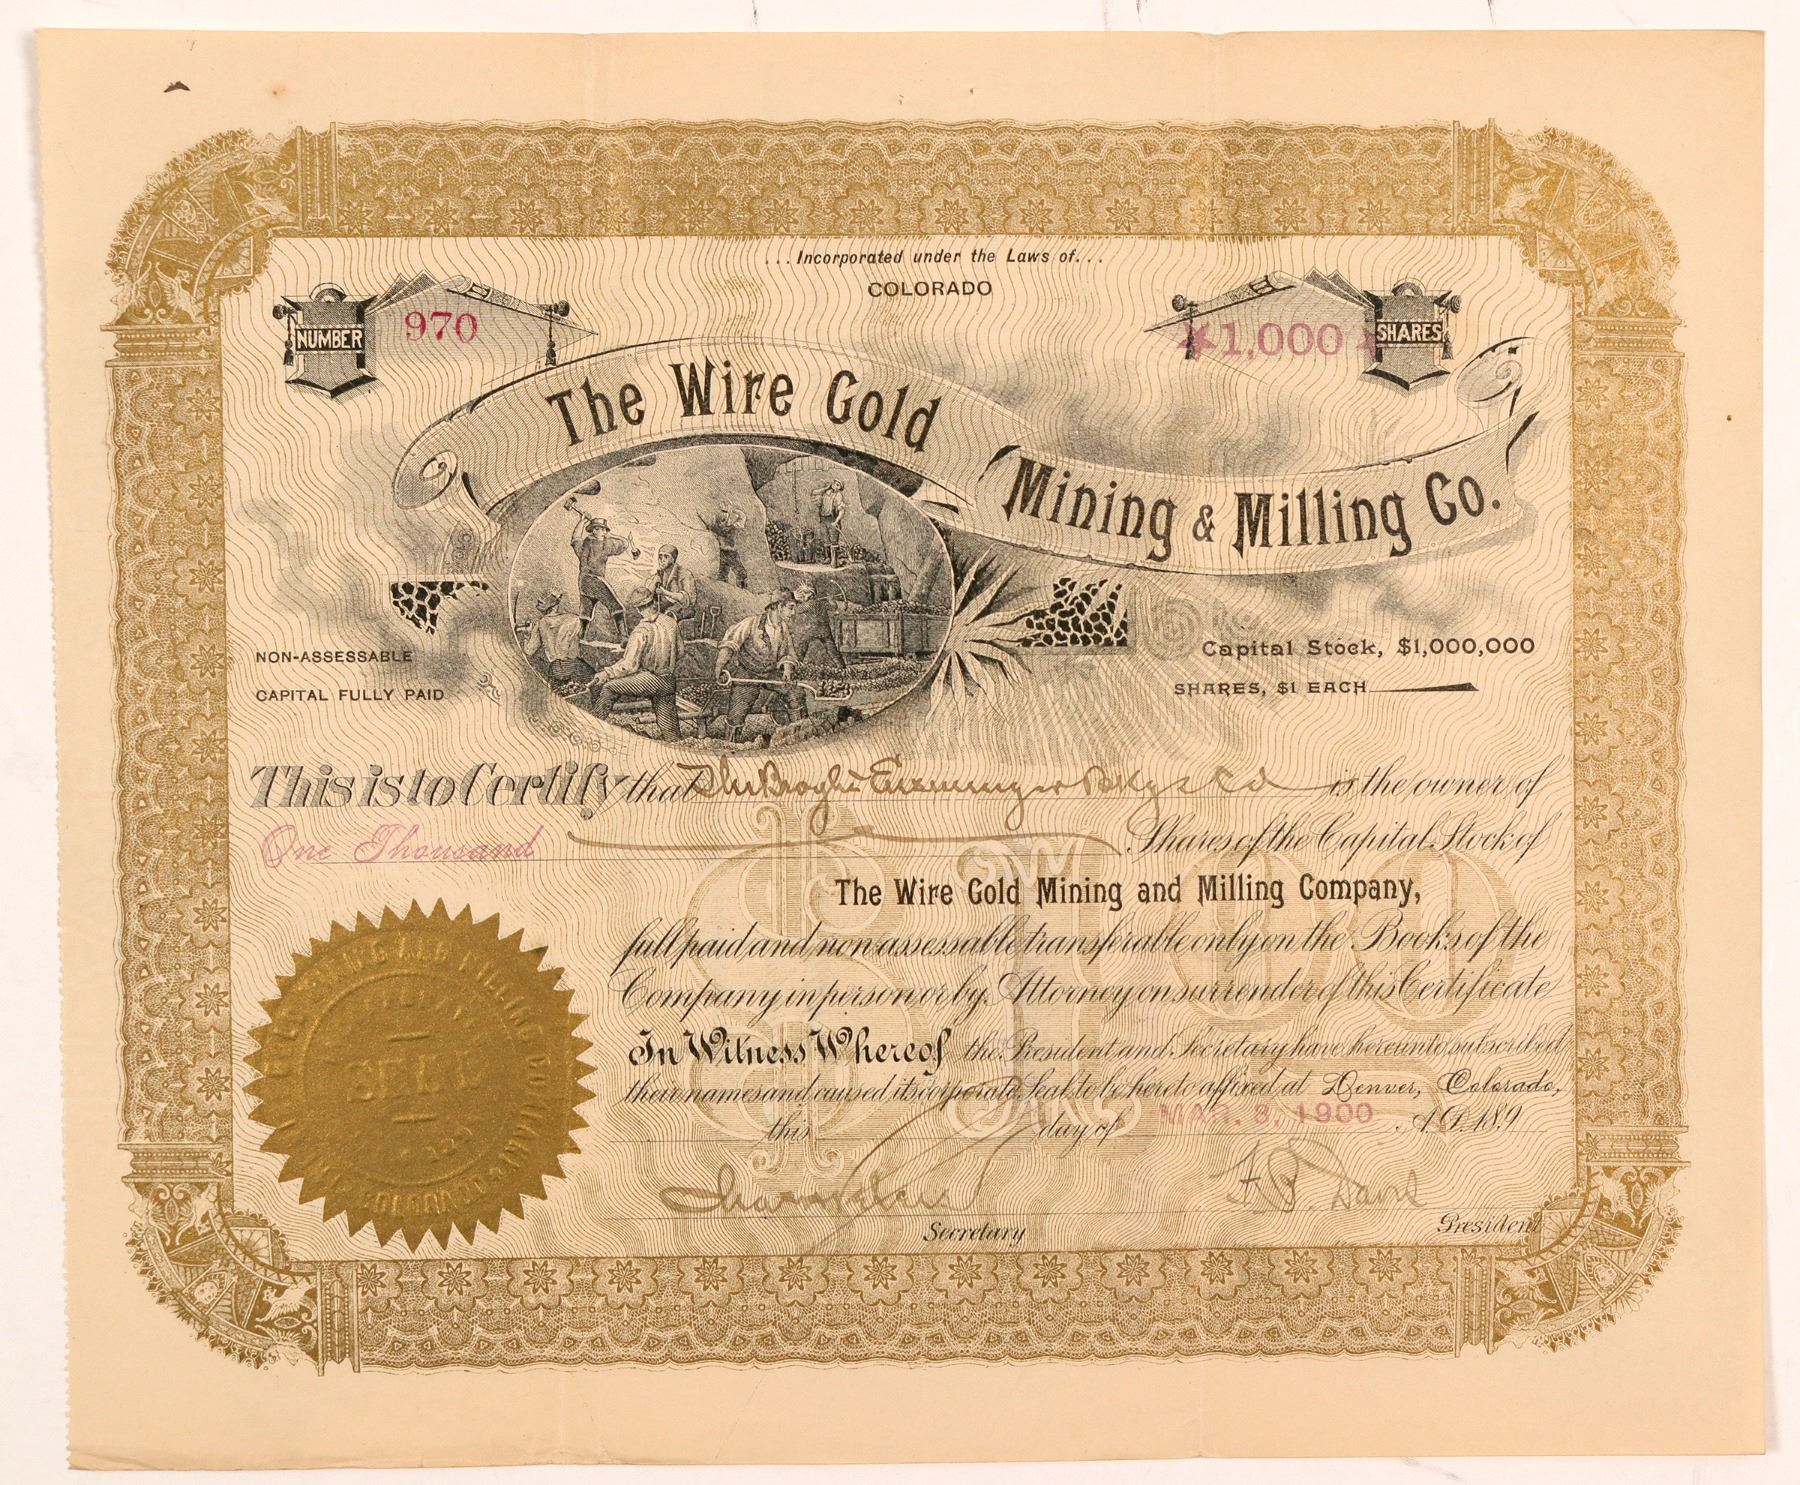 ...Incorporated under the Laws of...
COLORADO
NUMBER 970
1,000 SHARES
The Wire Gold Mining & Milling Co.
NON-ASSESSABLE
CAPITAL FULLY PAID
Capital Stock, $1,000,000
SHARES, $1 EACH
This is to Certify that is the owner of
One Thousand Shares of the Capital Stock of
The Wire Gold Mining and Milling Company,
full paid and non assessable transferable only on the Books of the
Company in person or by Attorney on surrender of this Certificate
In Witness Whereof the President and Secretary have hereunto subscribed
their names and caused its corporate Seal to be hereto affixed at Denver, Colorado,
this day of MAR. 3, 1900 A.D. 189
F. S. Davis
Secretary
President
SEAL
COLORADO